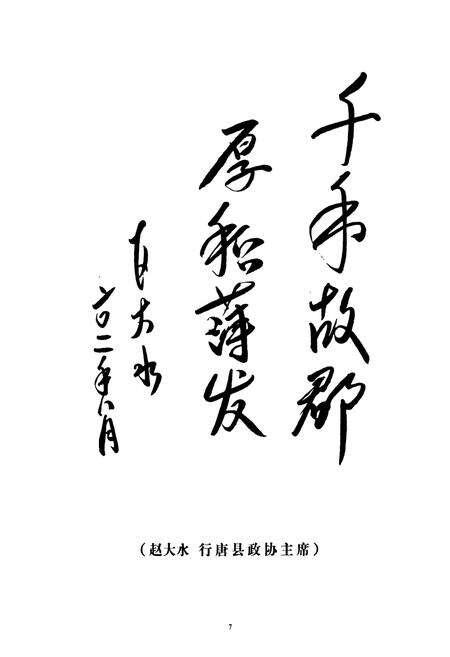 千年故郡
厚积薄发
赵大水
二〇一二年八月
(赵大水 行唐县政协主席)
7